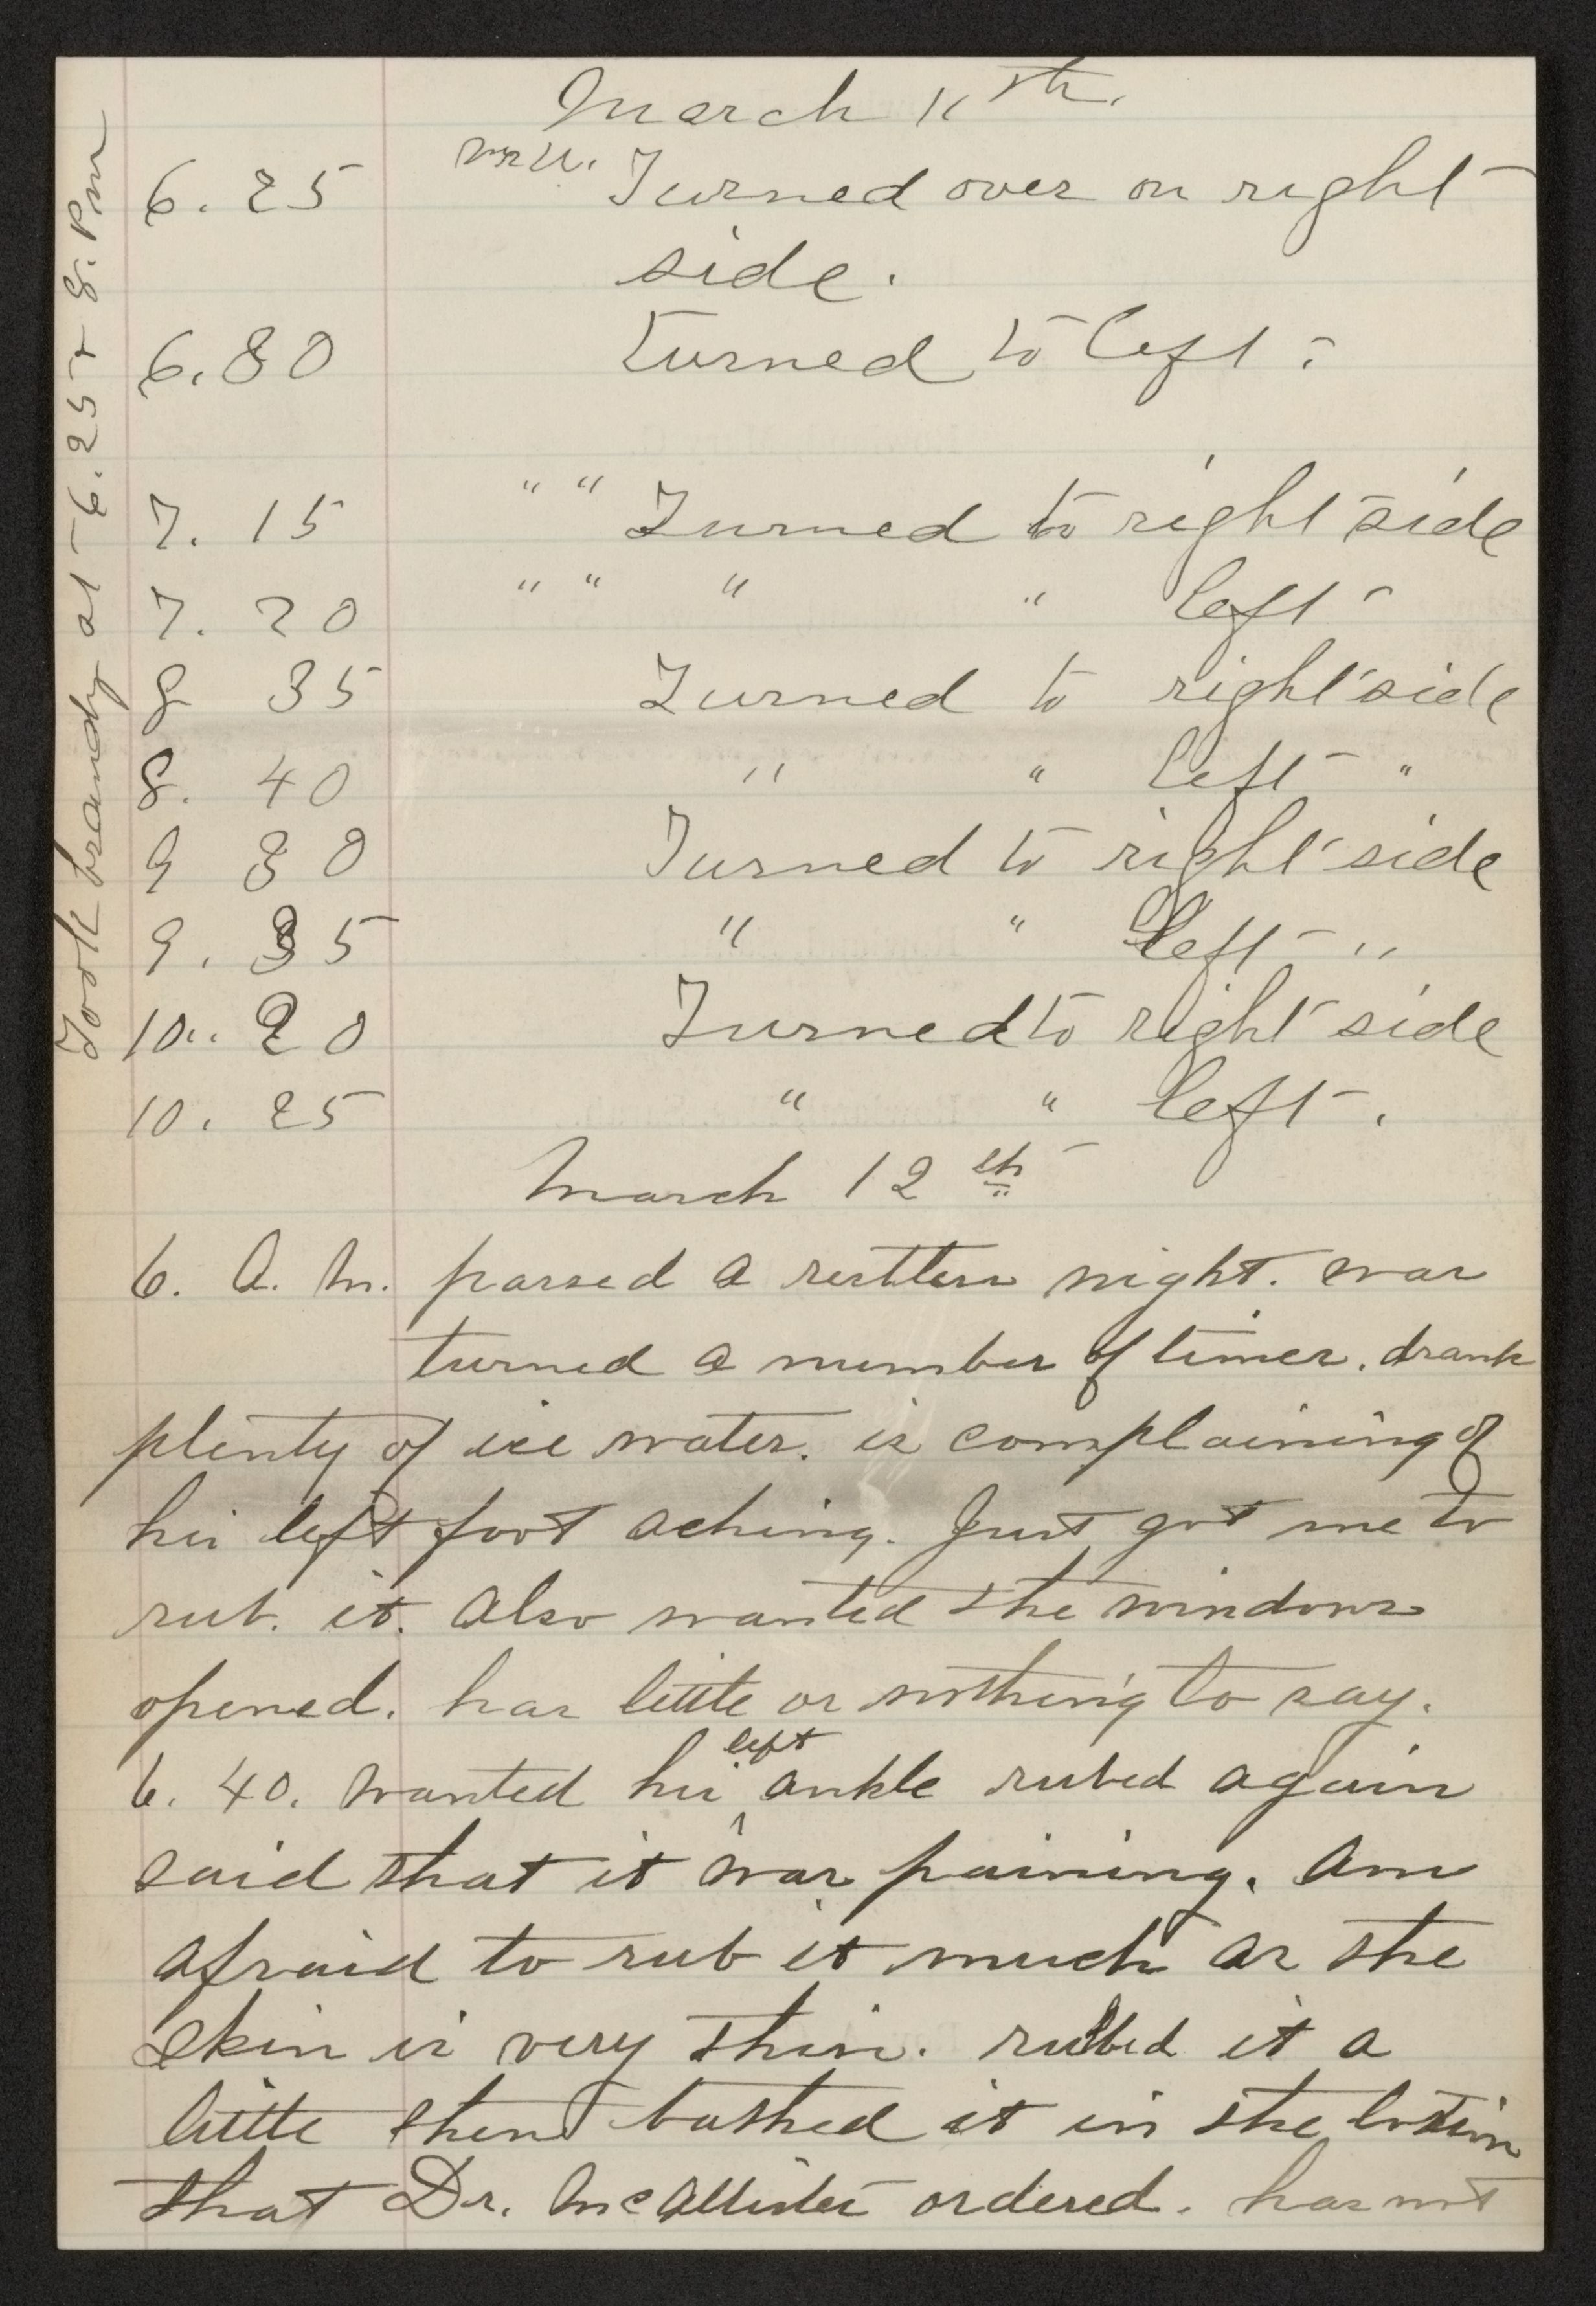 March 11th.
6.25 Turned over on right
side.
6.30 turned to left.
7.15 " " Turned to right side
7.20 " " " " left
8 35 Turned to right side
8.40 " " left "
9 30 Turned to right side
9.35 " " left "
10.20 Turned to right side
10.25 " " left.
Took brandy at 6.25 + 8. Pm
March 12th
6. A. M. passed a restless night. was
turned a number of times. drank
plenty of ice water. is complaining of
his left foot aching. Just got me to
rub. it. also wanted the windows
opened. has little or nothing to say.
6.40. Wanted his left ankle rubed again
said that it was paining. Am
afraid to rub it much as the
skin is very thin. rubbed it a
little then bathed it in the lotion
that Dr. McAllister ordered. has not